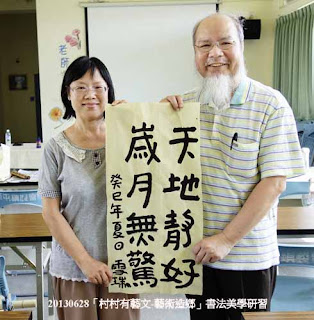 天地靜好
歲月無驚
癸巳年夏日 雪珠
老師
20130628「村村有藝文-藝術造鄉」書法美學研習